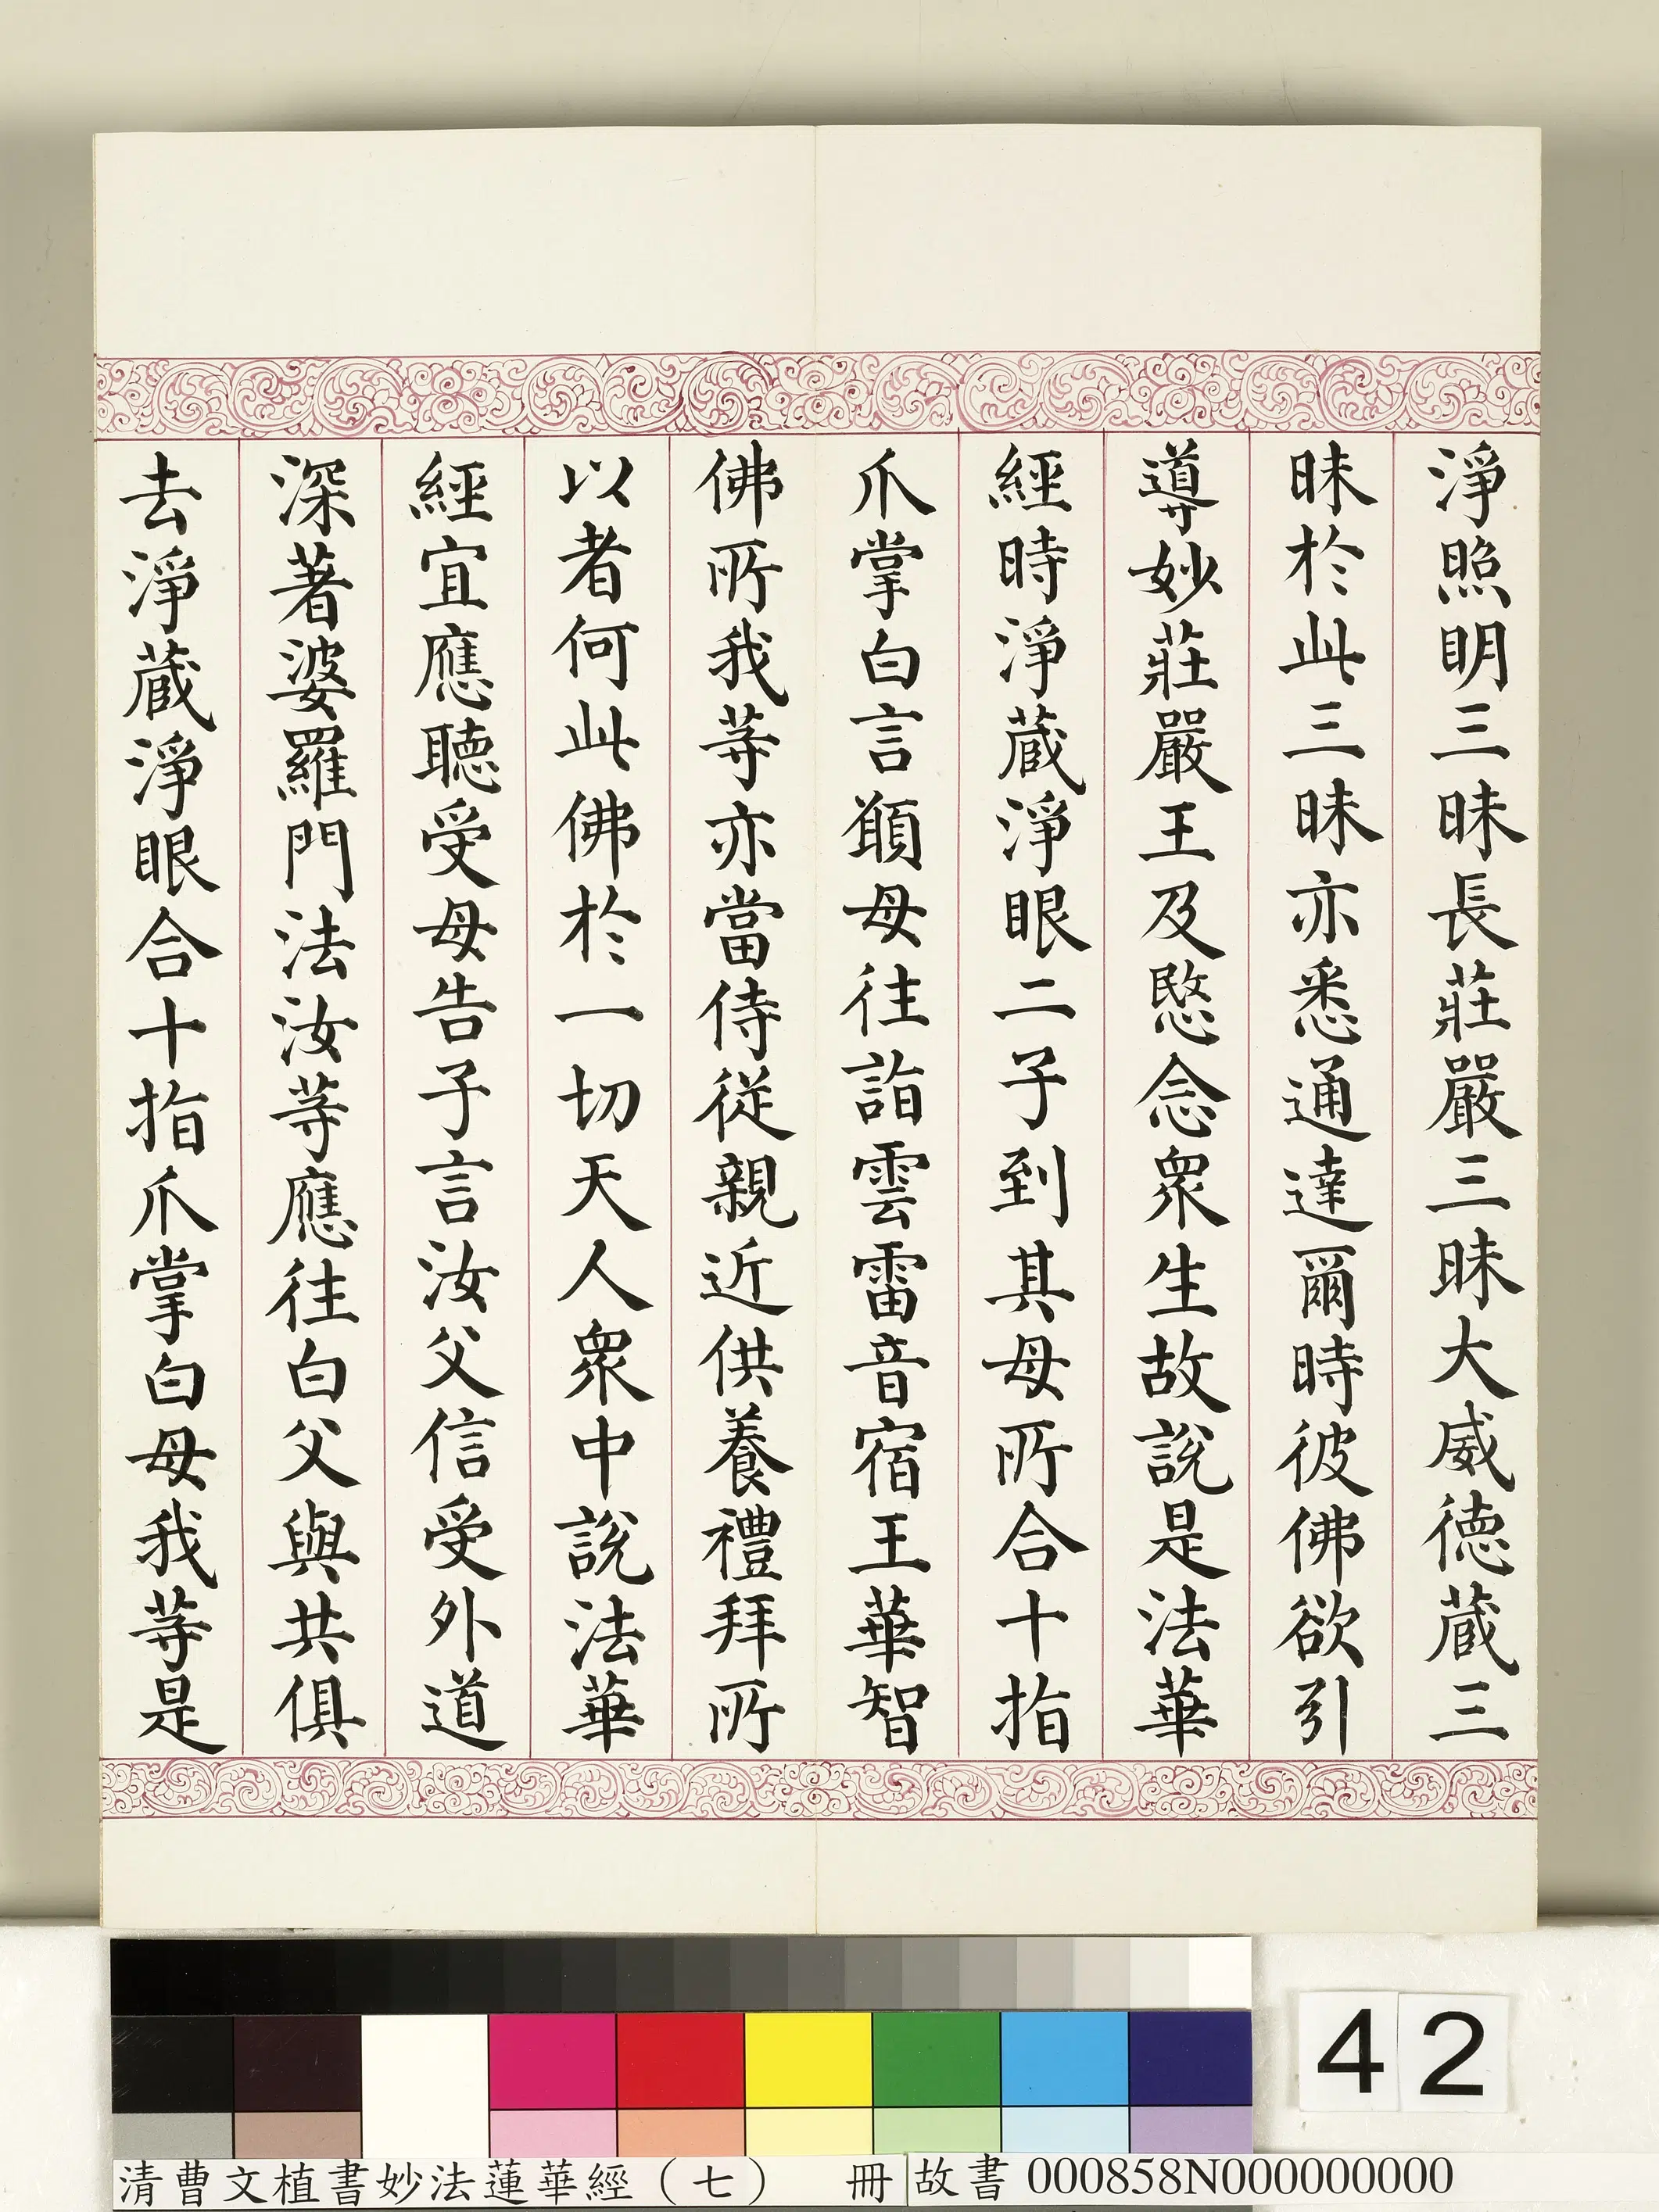 淨照明三昧長莊嚴三昧大威德藏三
昧於此三昧亦悉通達爾時彼佛欲引
導妙莊嚴王及愍念眾生故說是法華
經時淨藏淨眼二子到其母所合十指
爪掌白言願母往詣雲雷音宿王華智
佛所我等亦當侍從親近供養禮拜所
以者何此佛於一切天人眾中說法華
經宜應聽受母告子言汝父信受外道
深著婆羅門法汝等應往白父與共俱
去淨藏淨眼合十指爪掌白母我等是
42
清曹文植書妙法蓮華經(七) 冊
故書 000858N000000000